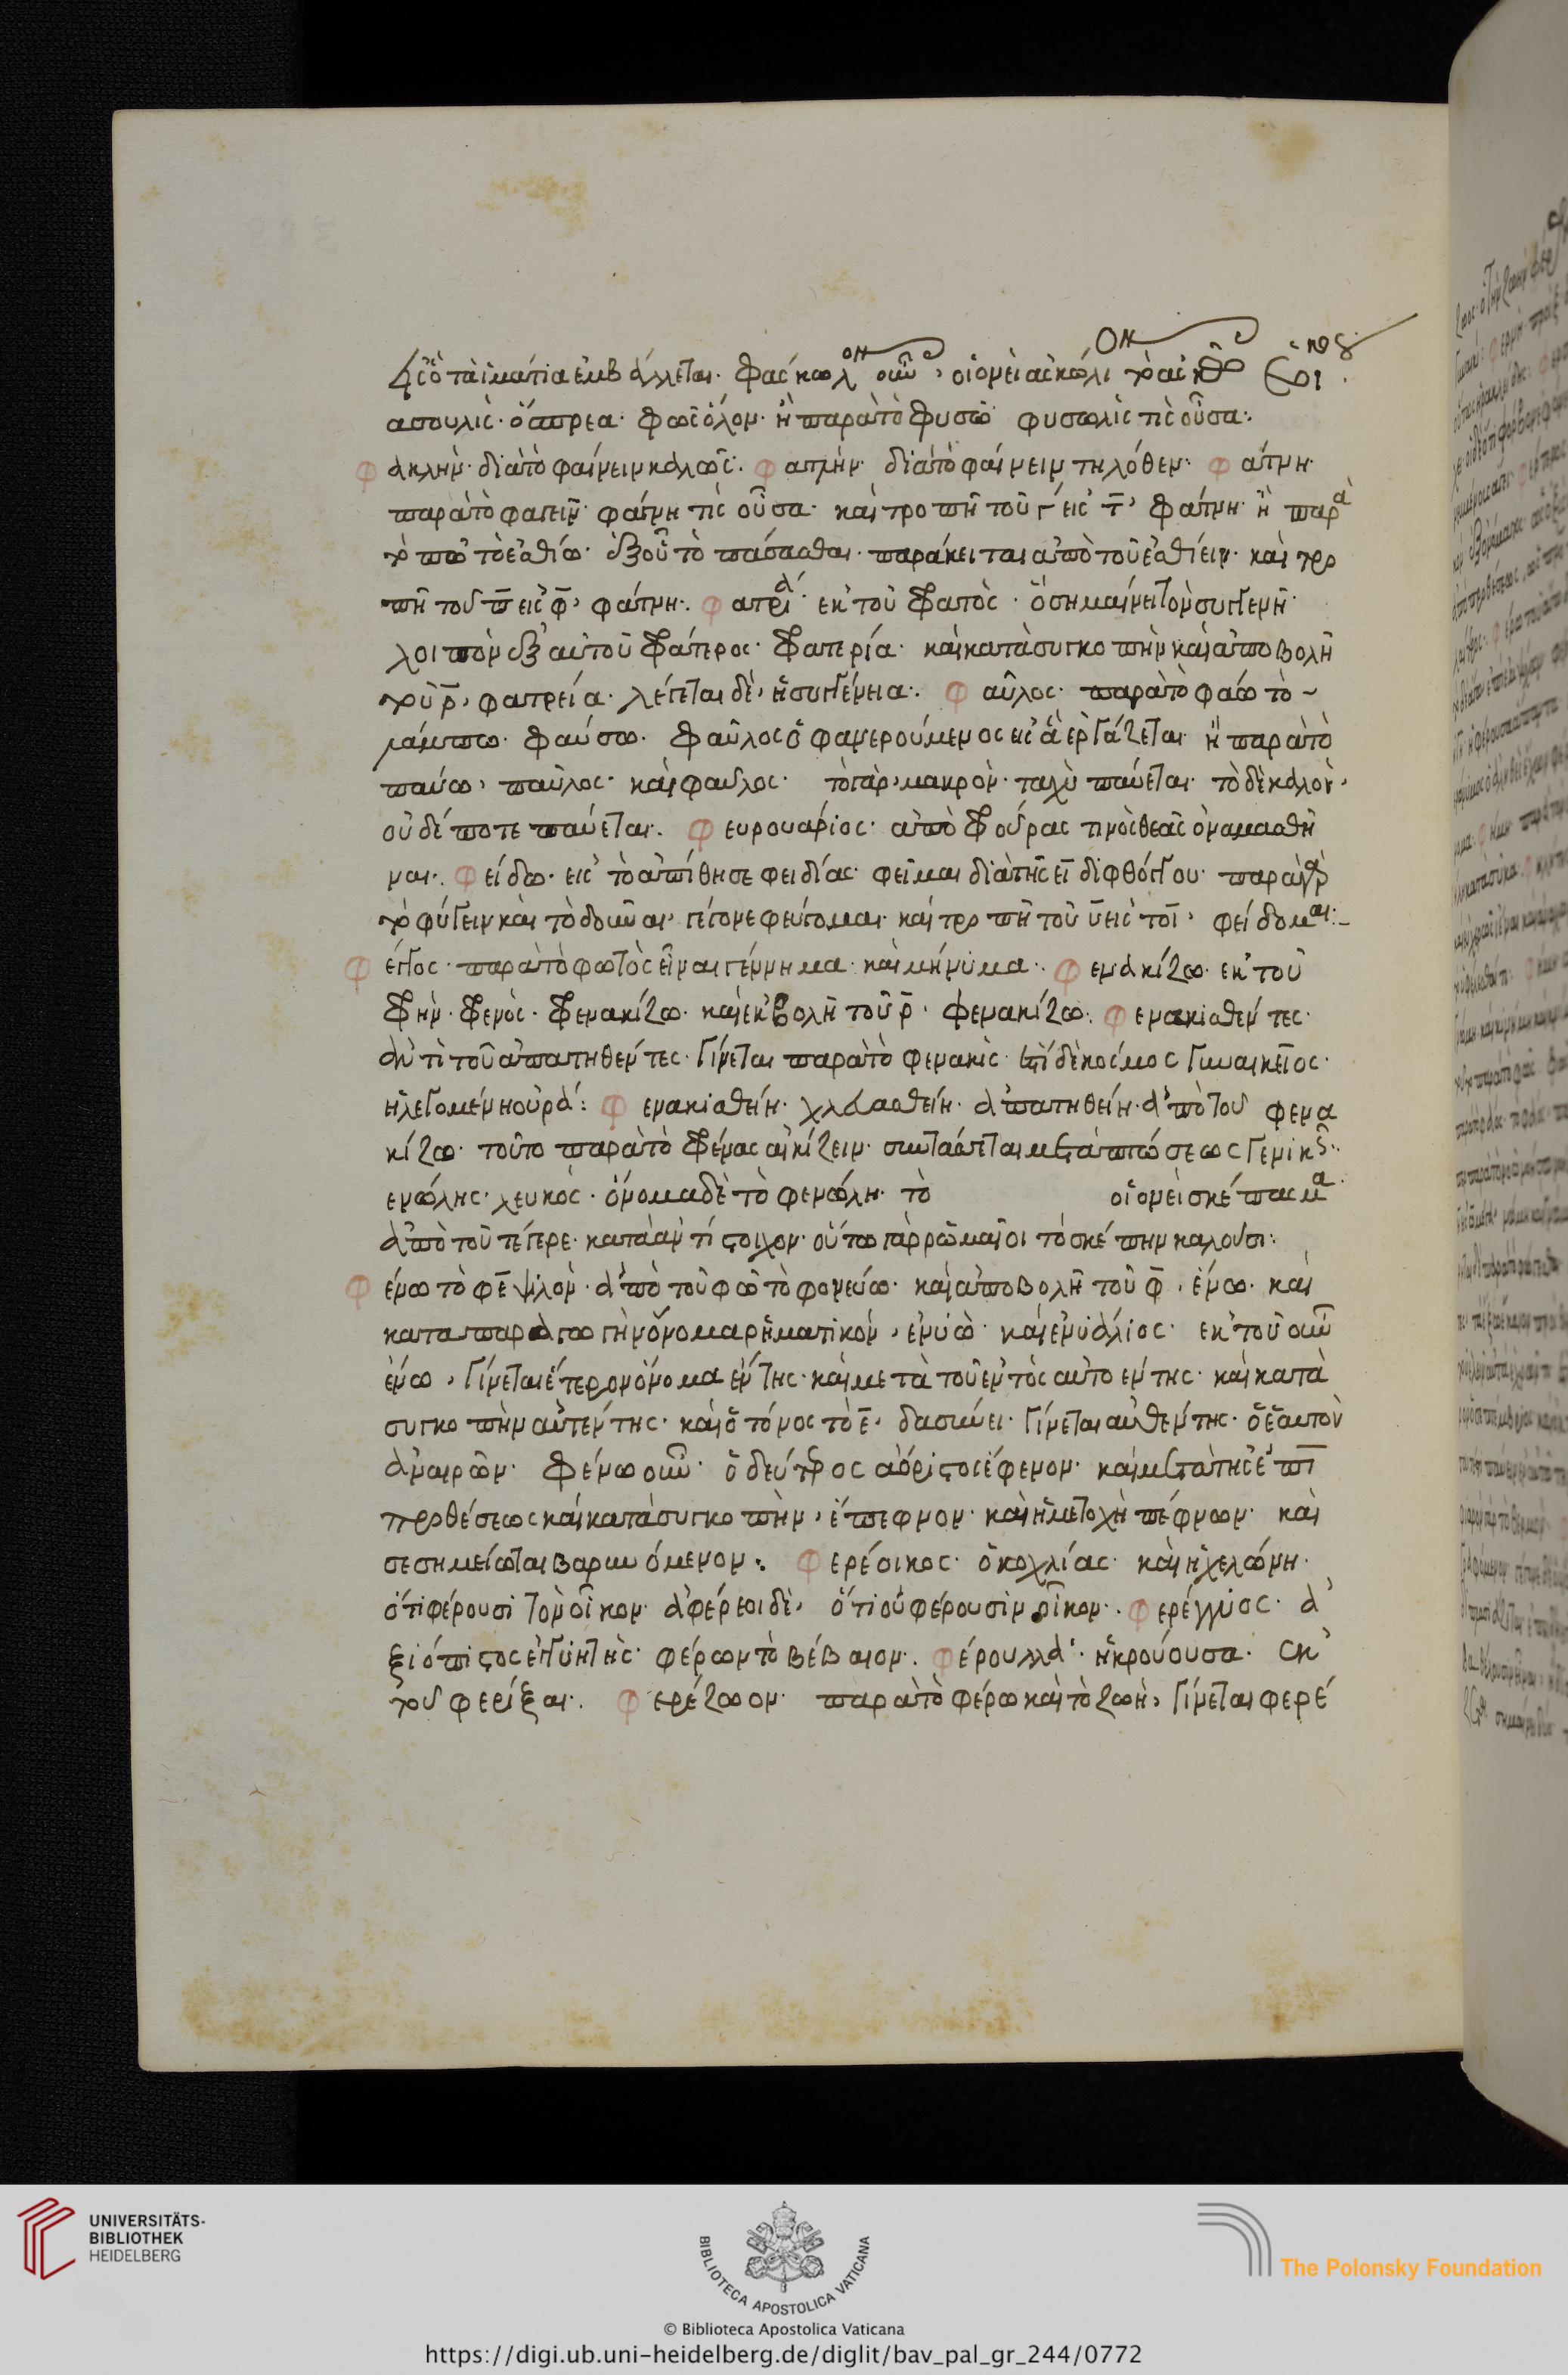 εἰς ὃ τὰ ἱμάτια ἐμβάλλεται. φάσκωλον οὖν, οἱονεὶ ἀσκώλι
φασουλις· ὅσπρεα· φως ὅλον· ἢ παρὰ τὸ φυσῶ φυσωλίς τις οὖσα.
φακλήν· διὰ τὸ φαίνειν καλῶς. φατλήν· διὰ τὸ φαίνειν τηλόθεν· φάτνη·
παρὰ τὸ φαγεῖν· φάγνη τις οὖσα· καὶ τροπῇ τοῦ γ εἰς τ̄, φάτνη· ἢ παρὰ
τὸ πῶ τὸ ἐσθίω· ἐξ οὗ τὸ πάσασθαι· παράκειται ἀπὸ τοῦ ἐσθίειν· καὶ τρο
πῇ τοῦ π̄ εἰς φ̄, φάτνη. φατρία· ἐκ τοῦ φατὸς· ὃ σημαίνει τὸν συγγενῆ·
λοιπὸν ἐξ αὐτοῦ φάτερος· φατερία· καὶ κατὰ συγκοπὴν καὶ ἀποβολῇ
τοῦ ρ̄, φατρεία· λέγεται δὲ, ἡ συγγένεια. φαῦλος· παρὰ τὸ φαύω τὸ
λάμπω· φαύσω. φαῦλος ὁ φανερούμενος εἰς ἃ ἐργάζεται· ἢ παρὰ τὸ
παύω, παῦλος· καὶ φαυλος· τὸ γὰρ, μακρὸν· ταχὺ παύεται· τὸ δὲ καλὸν,
οὐδέποτε παύεται. φευρουάριος· ἀπὸ φούρας τινὸς θεᾶς ὀνομασθῆ
ναι. φείδω· εἰς τὸ ἀπίθησε φειδίας· φεῖναι διὰ τῆς ει διφθόγγου· παρὰ γὰρ
τὸ φύγειν καὶ τὸ δοῦναι, γέγονε φεύγομαι· καὶ τροπῇ τοῦ ῡ εἰς τὸ ῑ, φείδομαι:
φέγγος· παρὰ τὸ φωτὸς εἶναι γέννημα· καὶ μήνυμα. φενακίζω· ἐκ τοῦ
φὴν· φενὸς· φενακίζω· καὶ ἐκβολῇ τοῦ ρ̄· φενακίζω. φενακισθέντες·
ἀντὶ τοῦ ἀπατηθέντες· γίνεται παρὰ τὸ φενακὶς· ἐστὶ δὲ κόσμος γυναικεῖος·
ἡ λεγομένη οὐρά: φενακισθείη· χλευασθείη· ἀπατηθείη· ἀπὸ τοῦ φενα
κίζω· τοῦτο παρὰ τὸ φένας αἰκίζειν· συντάσσεται μετὰ πτώσεως γενικῆς.
ενώλης· λευκὸς· ὄνομα δὲ τὸ φενώλη· τὸ οἱονεὶ σκέπασμα
ἀπὸ τοῦ τέγερε· κατὰ ἀντίστοιχον· οὕτω γὰρ ρωμαῖοι τὸ σκέπην καλοῦσι:
φένω τὸ φε ψιλὸν· ἀπὸ τοῦ φῶ τὸ φονεύω· καὶ ἀποβολῇ τοῦ φ̄, ἔνω· καὶ
κατα παραγωγὴν ὄνομα ρηματικὸν, ἐνύω· καὶ ἐνυάλιος· ἐκ τοῦ οὖν
ἔνω, γίνεται ἕτερον ὄνομα ἕντης· καὶ μετὰ τοῦ ἐντὸς αὐτο εντης· καὶ κατὰ
συγκοπὴν αὐτέντης· καὶ ὁ τόνος τὸ ε̄, δασύνει· γίνεται αὐθέντης· ὁ ἑαυτὸν
ἀναιρῶν· φένω οὖν· ὁ δεύτερος ἀόριστος ἔφενον· καὶ μετὰ τῆς ἐπι
προθέσεως καὶ κατὰ συγκοπὴν, ἔπεφνον· καὶ ἡ μετοχὴ πέφνων· καὶ
σεσημείωται βαρυνόμενον. φερέοικος· ὁ κοχλίας· καὶ ἡ χελώνη·
ὅτι φέρουσι τὸν οἶκον· ἀφέρεοι δὲ, ὅτι οὐ φέρουσὶν οἶκον. φερέγγυος· ἀ
ξιόπιστος ἐγγυητὴς· φέρων τὸ βέβαιον. φέρουλλα· ἡ κρούουσα· ἐκ
τοῦ φερίξαι. φερέζωον· παρὰ τὸ φέρω καὶ τὸ ζωὴ, γίνεται φερέ
UNIVERSITÄTS-
BIBLIOTHEK
HEIDELBERG
BIBLIOTECA APOSTOLICA VATICANA
The Polonsky Foundation
© Biblioteca Apostolica Vaticana
https://digi.ub.uni-heidelberg.de/diglit/bav_pal_gr_244/0772